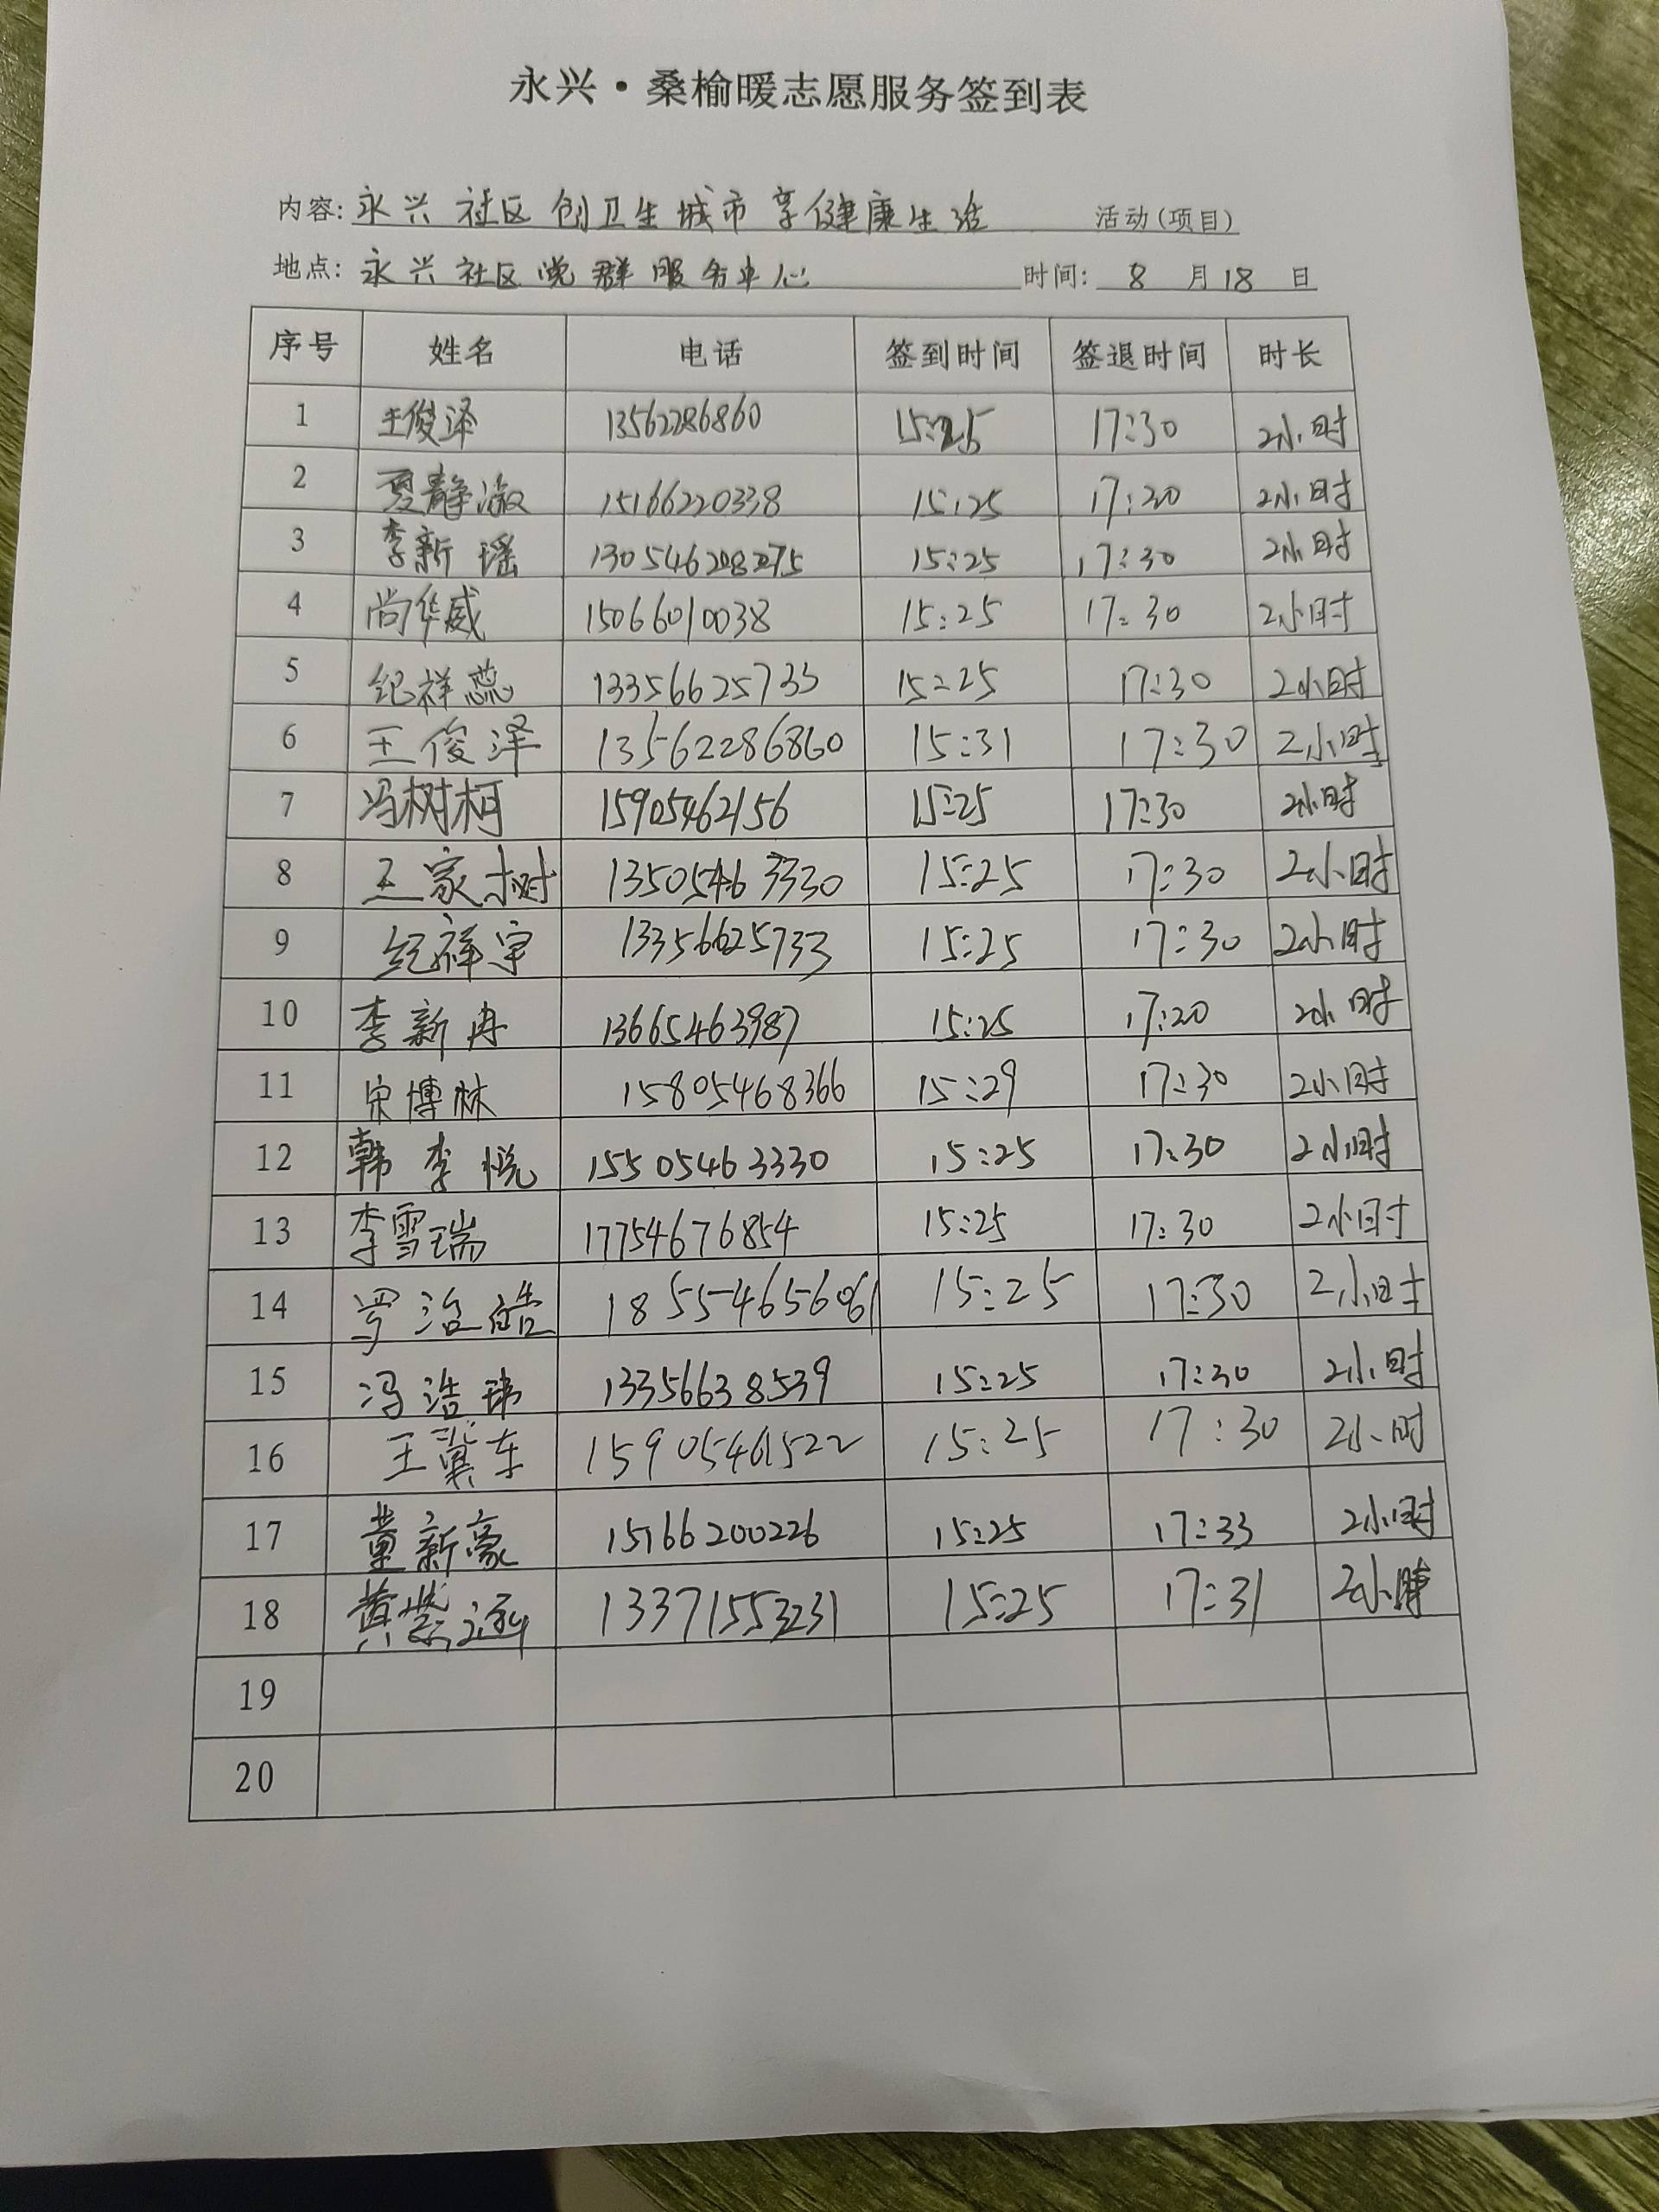 永兴·桑榆暖志愿服务签到表
内容: 永兴社区创卫生城市享健康生活 活动(项目)
地点: 永兴社区党群服务中心 时间: 8 月 18 日
序号 姓名 电话 签到时间 签退时间 时长
1 王俊泽 13562286860 15:25 17:30 2小时
2 夏静溦 15166220338 15:25 17:20 2小时
3 李新瑶 15:25 17:30 2小时
4 尚华威 15066010038 15:25 17:30 2小时
5 纪祥蕊 13356625733 15:25 17:30 2小时
6 王俊泽 13562286860 15:31 17:30 2小时
7 冯树柯 15905462156 15:25 17:30 2小时
8 王家树 13505463330 15:25 17:30 2小时
9 纪祥宇 13356625733 15:25 17:30 2小时
10 李新冉 13665463987 15:25 17:20 2小时
11 宋博林 15805468366 15:29 17:30 2小时
12 韩李悦 15505463330 15:25 17:30 2小时
13 李雪瑞 17754676854 15:25 17:30 2小时
14 罗治皓 15:25 17:30 2小时
15 冯浩玮 13356638539 15:25 17:30 2小时
16 王冀东 15905461522 15:25 17:30 2小时
17 董新豪 15166200226 15:25 17:33 2小时
18 黄紫 13371553231 15:25 17:31 2小时
19
20